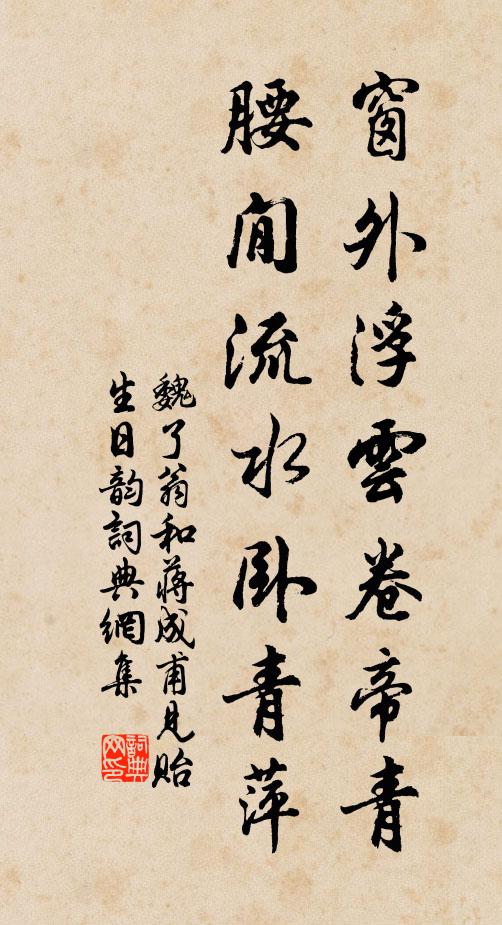 窗外浮雲卷帝青
腰間流水卧青萍
魏了翁和蔣成甫見貽
生日韵詞典網集
詞典网印